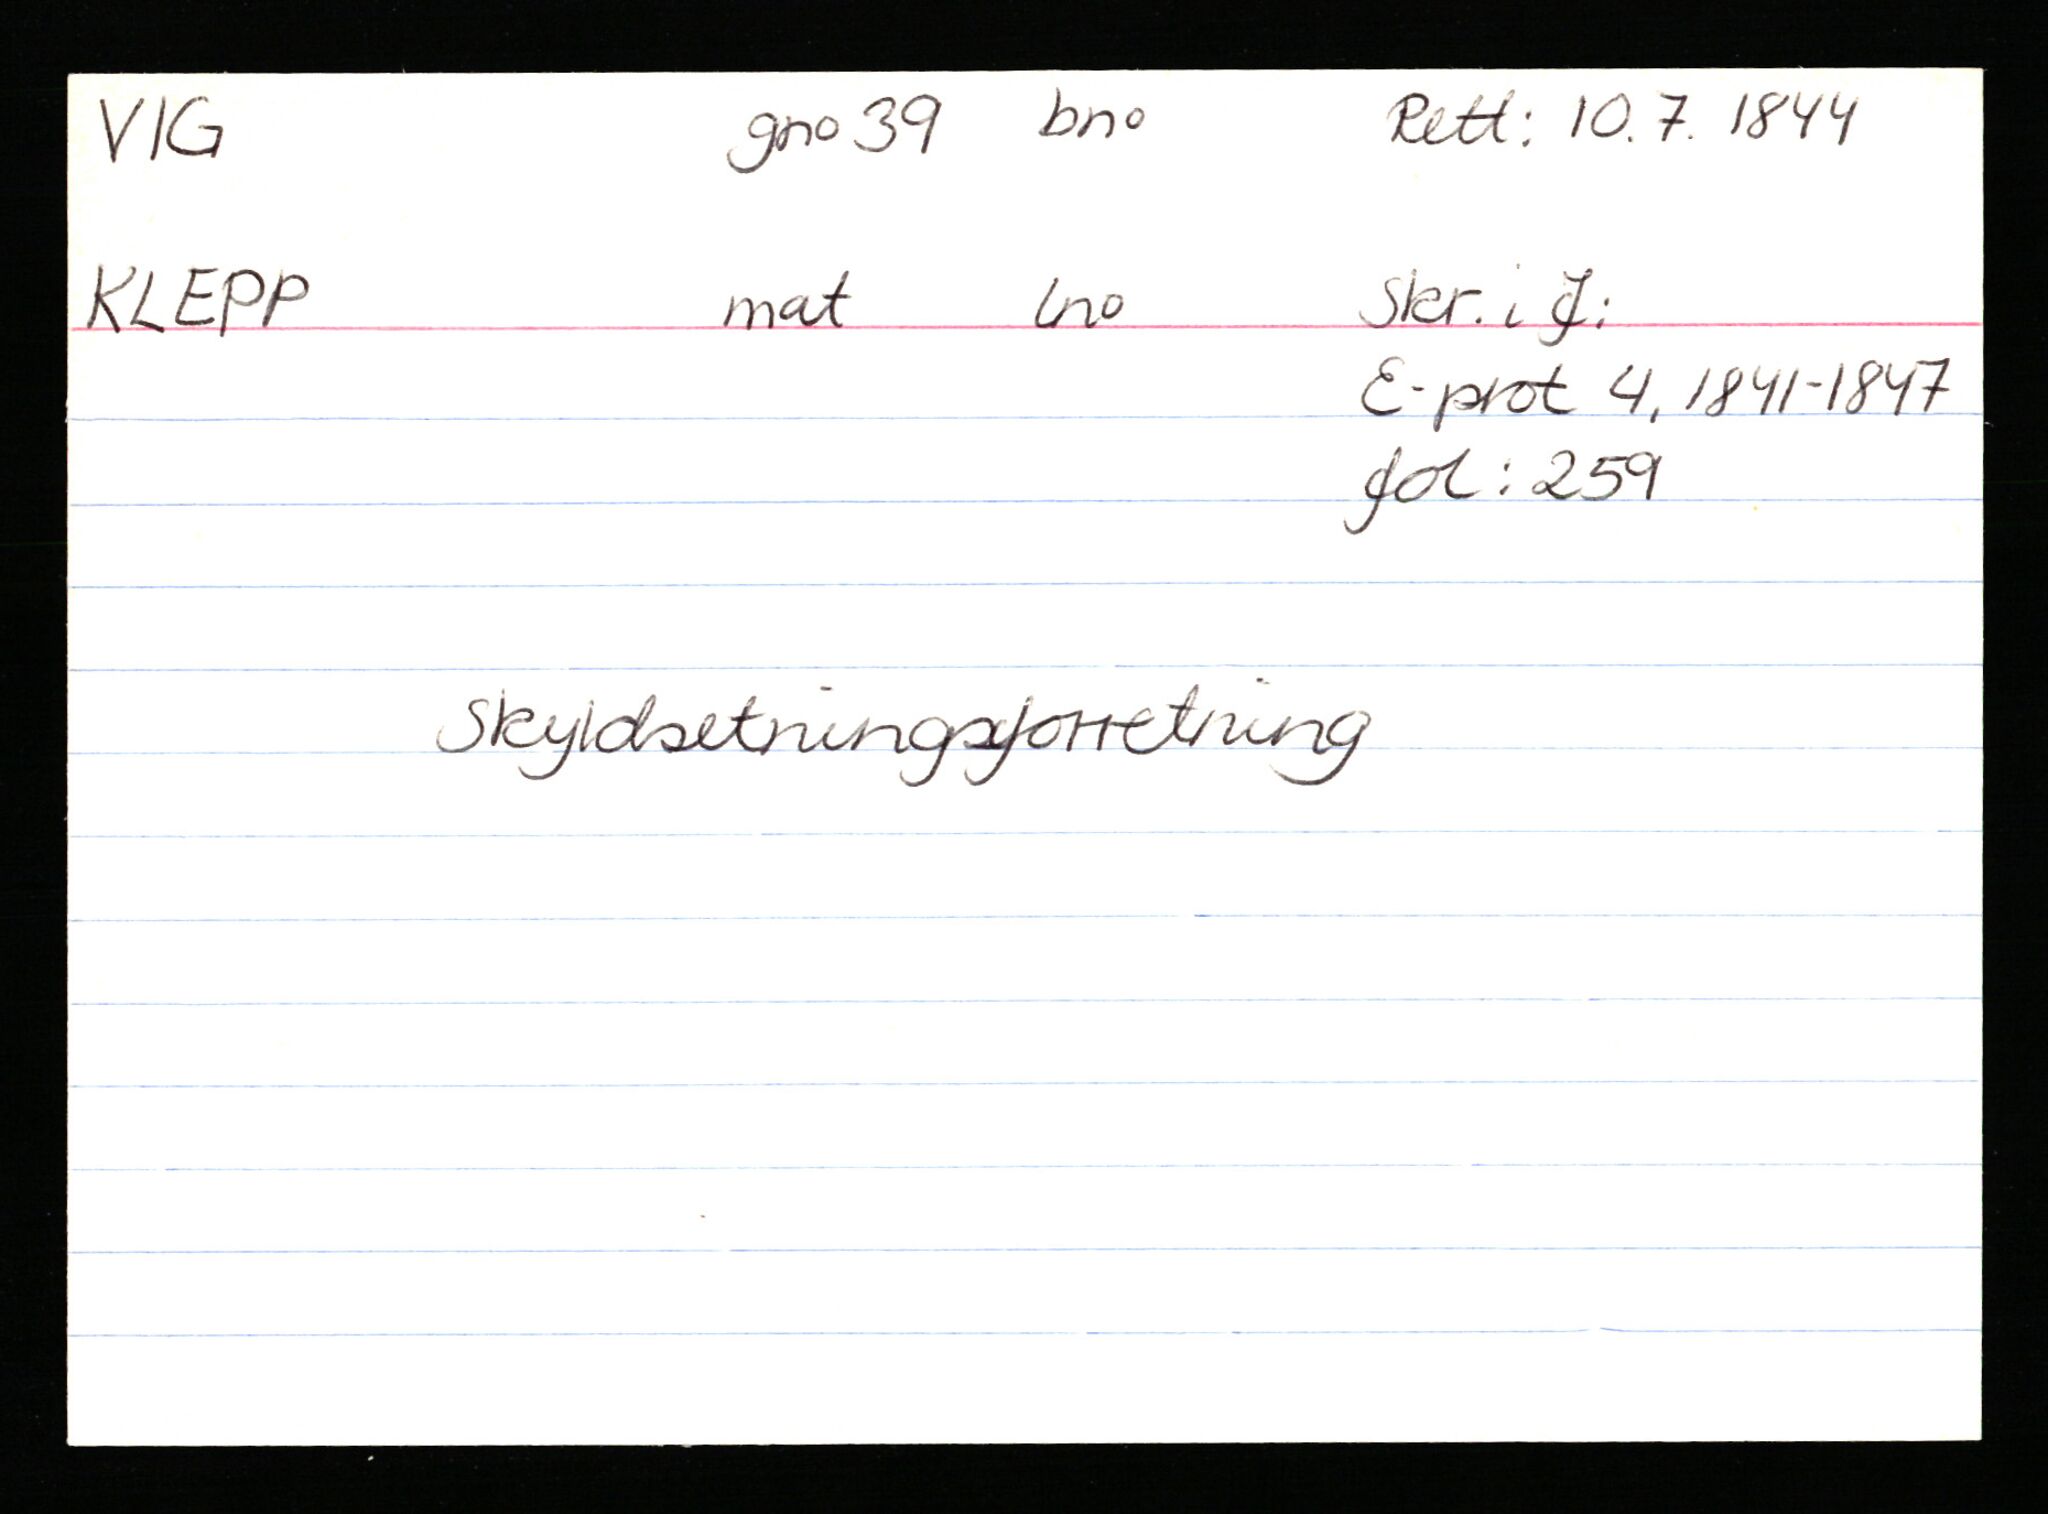 VIG gno 39 bno Rett: 10.7. 1844
KLEPP mat lno Skr. i J:
E-prot 4, 1841-1847
fol: 259
Skyldsetningsforretning